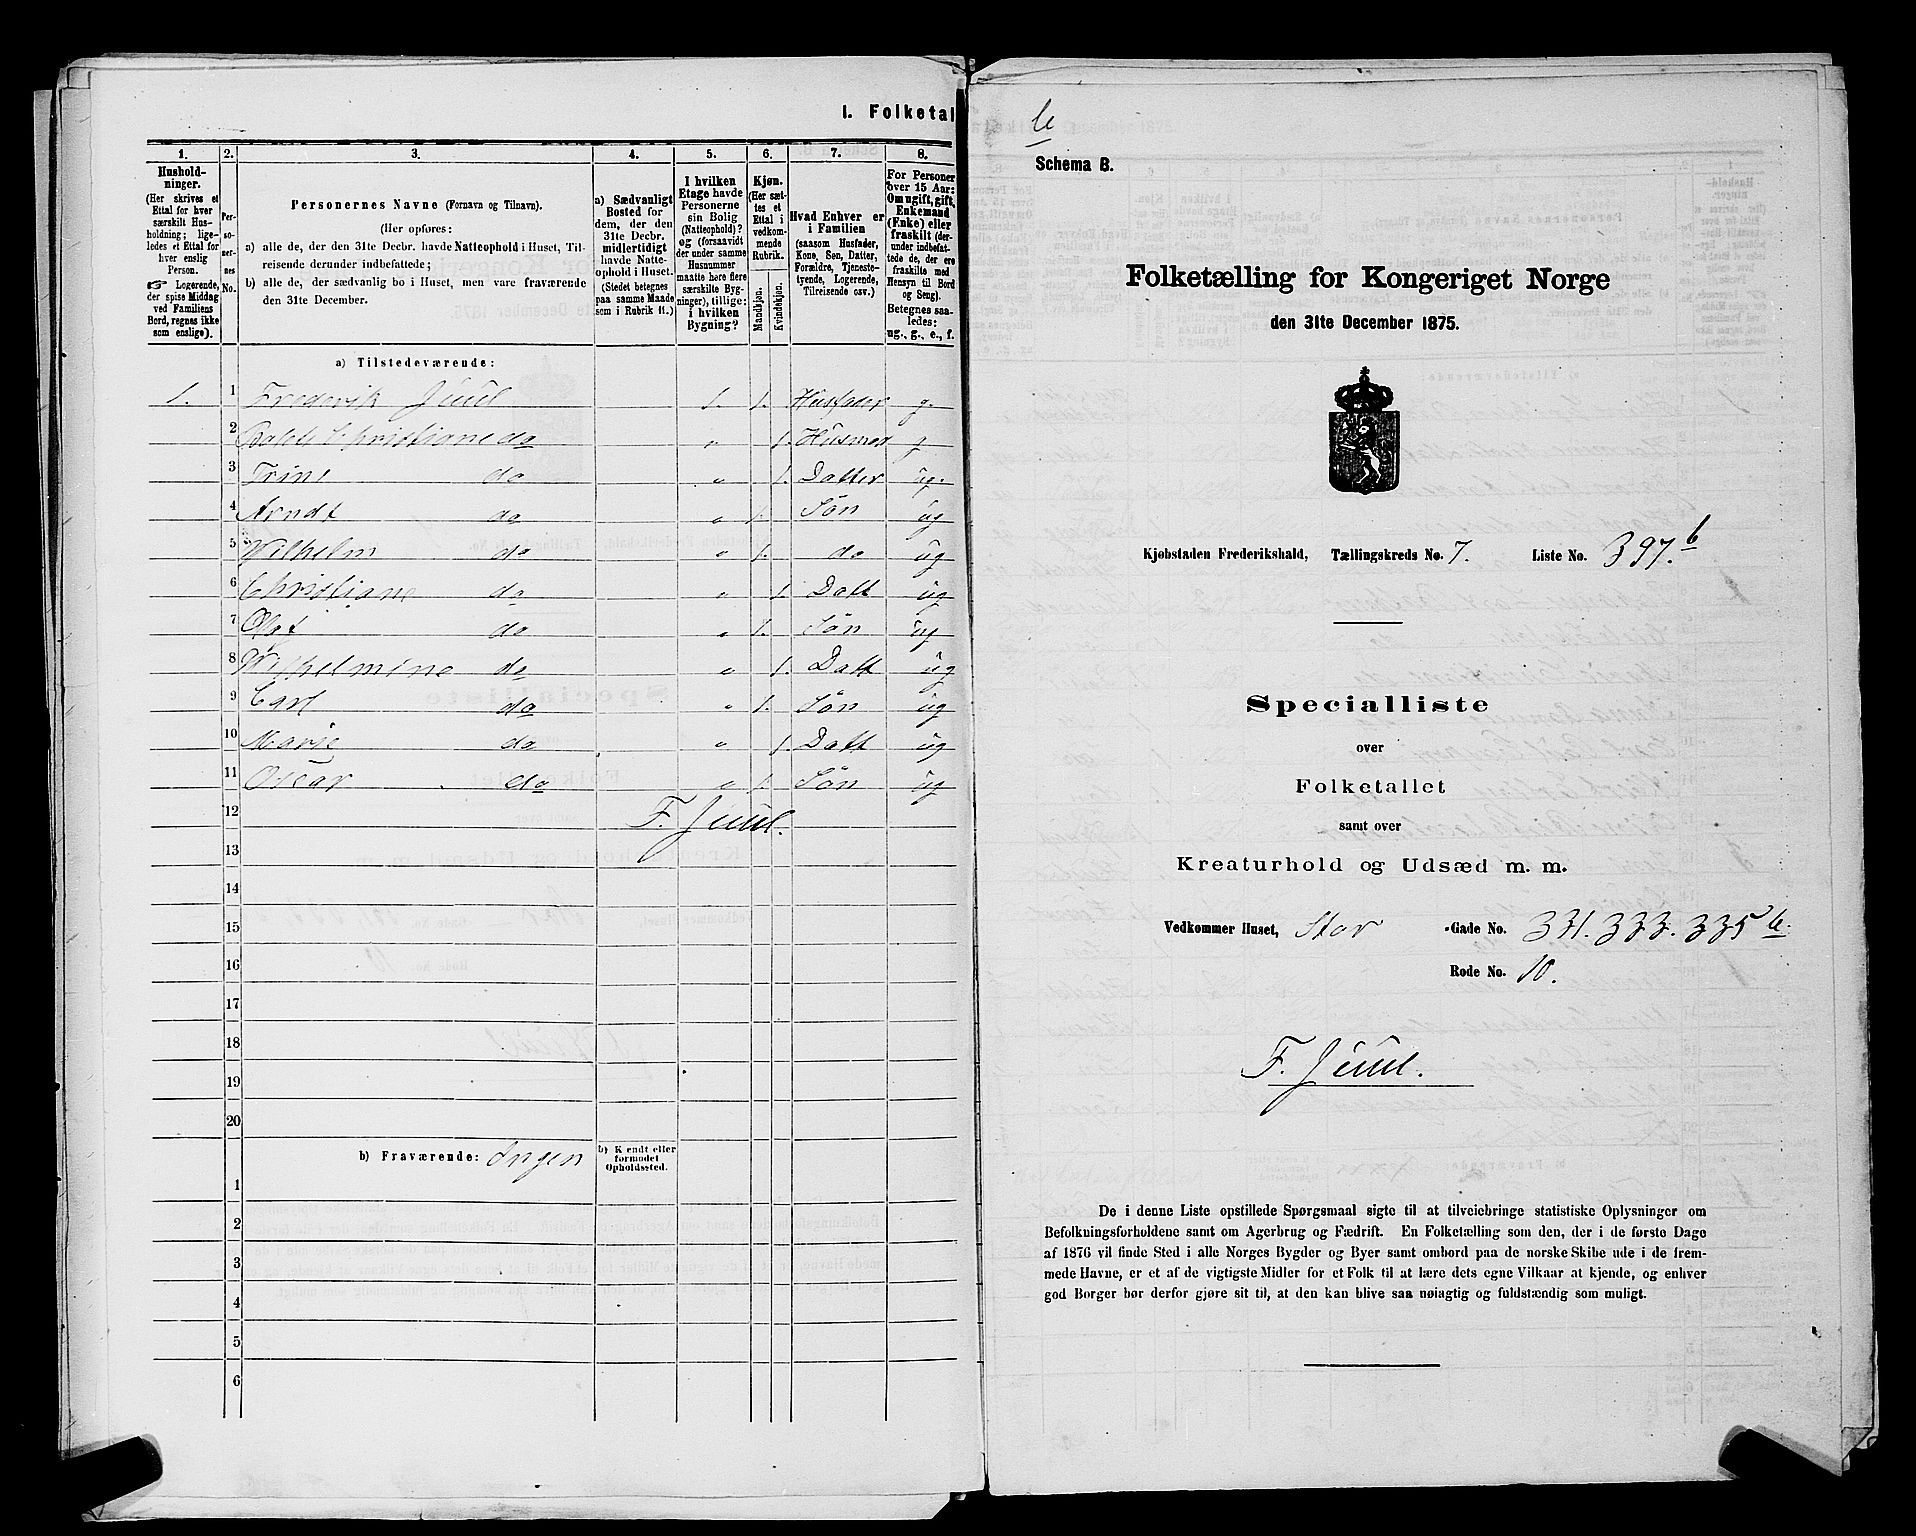 I. Folketal
1.
2.
3.
4.
5.
6.
7.
8.
Hushold-
ninger.
(Her skrives et
Ettal for hver
særskilt Hus-
holdning; lige-
ledes et Ettal for
hver enslig
Person.
☞ Logerende,
der spise Middag
ved Familiens
Bord, regnes ikke
som enslige).
Per-
so-
ner-
nes
No.
Personernes Navne (Fornavn og Tilnavn).
(Her opføres:
a) alle de, der den 31te Decbr. havde Natteophold i Huset, Til-
reisende derunder indbefattede;
b) alle de, der sædvanlig bo i Huset, men vare fraværende
den 31te December.
a) Sædvanligt
Bosted for
dem, der den
31te Decbr.
midlertidigt
havde Natte-
ophold i Huset.
(Stedet betegnes
paa samme Maade
som i Rubrik 11.)
I hvilken
Etage havde
Personerne
sin Bolig
(Natteophold)?
og (forsaavidt
der under samme
Husnummer
maatte høre flere
særskilte Byg-
ninger), tillige:
i hvilken
Bygning?
Kjøn.
(Her sæt-
tes et
Ettal i
vedkom-
mende
Rubrik.
Mandkjøn.
Kvindekjøn.
Hvad Enhver er
i Familien
(saasom Husfader,
Kone, Søn, Datter,
Forældre, Tjeneste-
tyende, Logerende,
Tilreisende osv.)
For Personer
over 15 Aar:
Om ugift, gift,
Enkemand
(Enke) eller
fraskilt (der-
under indbefat-
tede de, der ere
fraskilte med
Hensyn til Bord
og Seng).
Betegnes saa-
ledes:
ug., g., e., f.
a) Tilstedeværende:
1. 1 Frederik Juul 1. 1. Husfader g.
2 Christiane do " 1. Husmor g
3 Trine do " 1. Datter ug.
4 Arndt do " 1. Søn ug
5 Wilhelm do " 1. do ug
6 Christiane do " 1. Datt ug
7 Olaf do " 1. Søn ug
8 Wilhelmine do " 1. Datt ug
9 Carl do " 1. Søn ug
10 Marie do " 1 Datt ug
11 Oscar do " 1. Søn ug
12 F. Juul.
13
14
15
16
17
18
19
20
b) Fraværende: Ingen
b) Kendt eller
formodet
Opholdssted.
1
2
3
4
5
6
b
Schema B.
Folketælling for Kongeriget Norge
den 31te December 1875.
Kjøbstaden Frederikshald, Tællingskreds No. 7. Liste No. 397.b
Specialliste
over
Folketallet
samt over
Kreaturhold og Udsæd m. m.
Vedkommer Huset, Stor -Gade No. 331. 333. 335 b.
Rode No. 10.
F. Juul.
De i denne Liste opstillede Spørgsmaal sigte til at tilveiebringe statistiske Oplysninger om
Befolkningsforholdene samt om Agerbrug og Fædrift. En Folketælling som den, der i de første Dage
af 1876 vil finde Sted i alle Norges Bygder og Byer samt ombord paa de norske Skibe ude i de frem-
mede Havne, er et af de vigtigste Midler for et Folk til at lære dets egne Vilkaar at kjende, og enhver
god Borger bør derfor gjøre sit til, at den kan blive saa nøiagtig og fuldstændig som muligt.